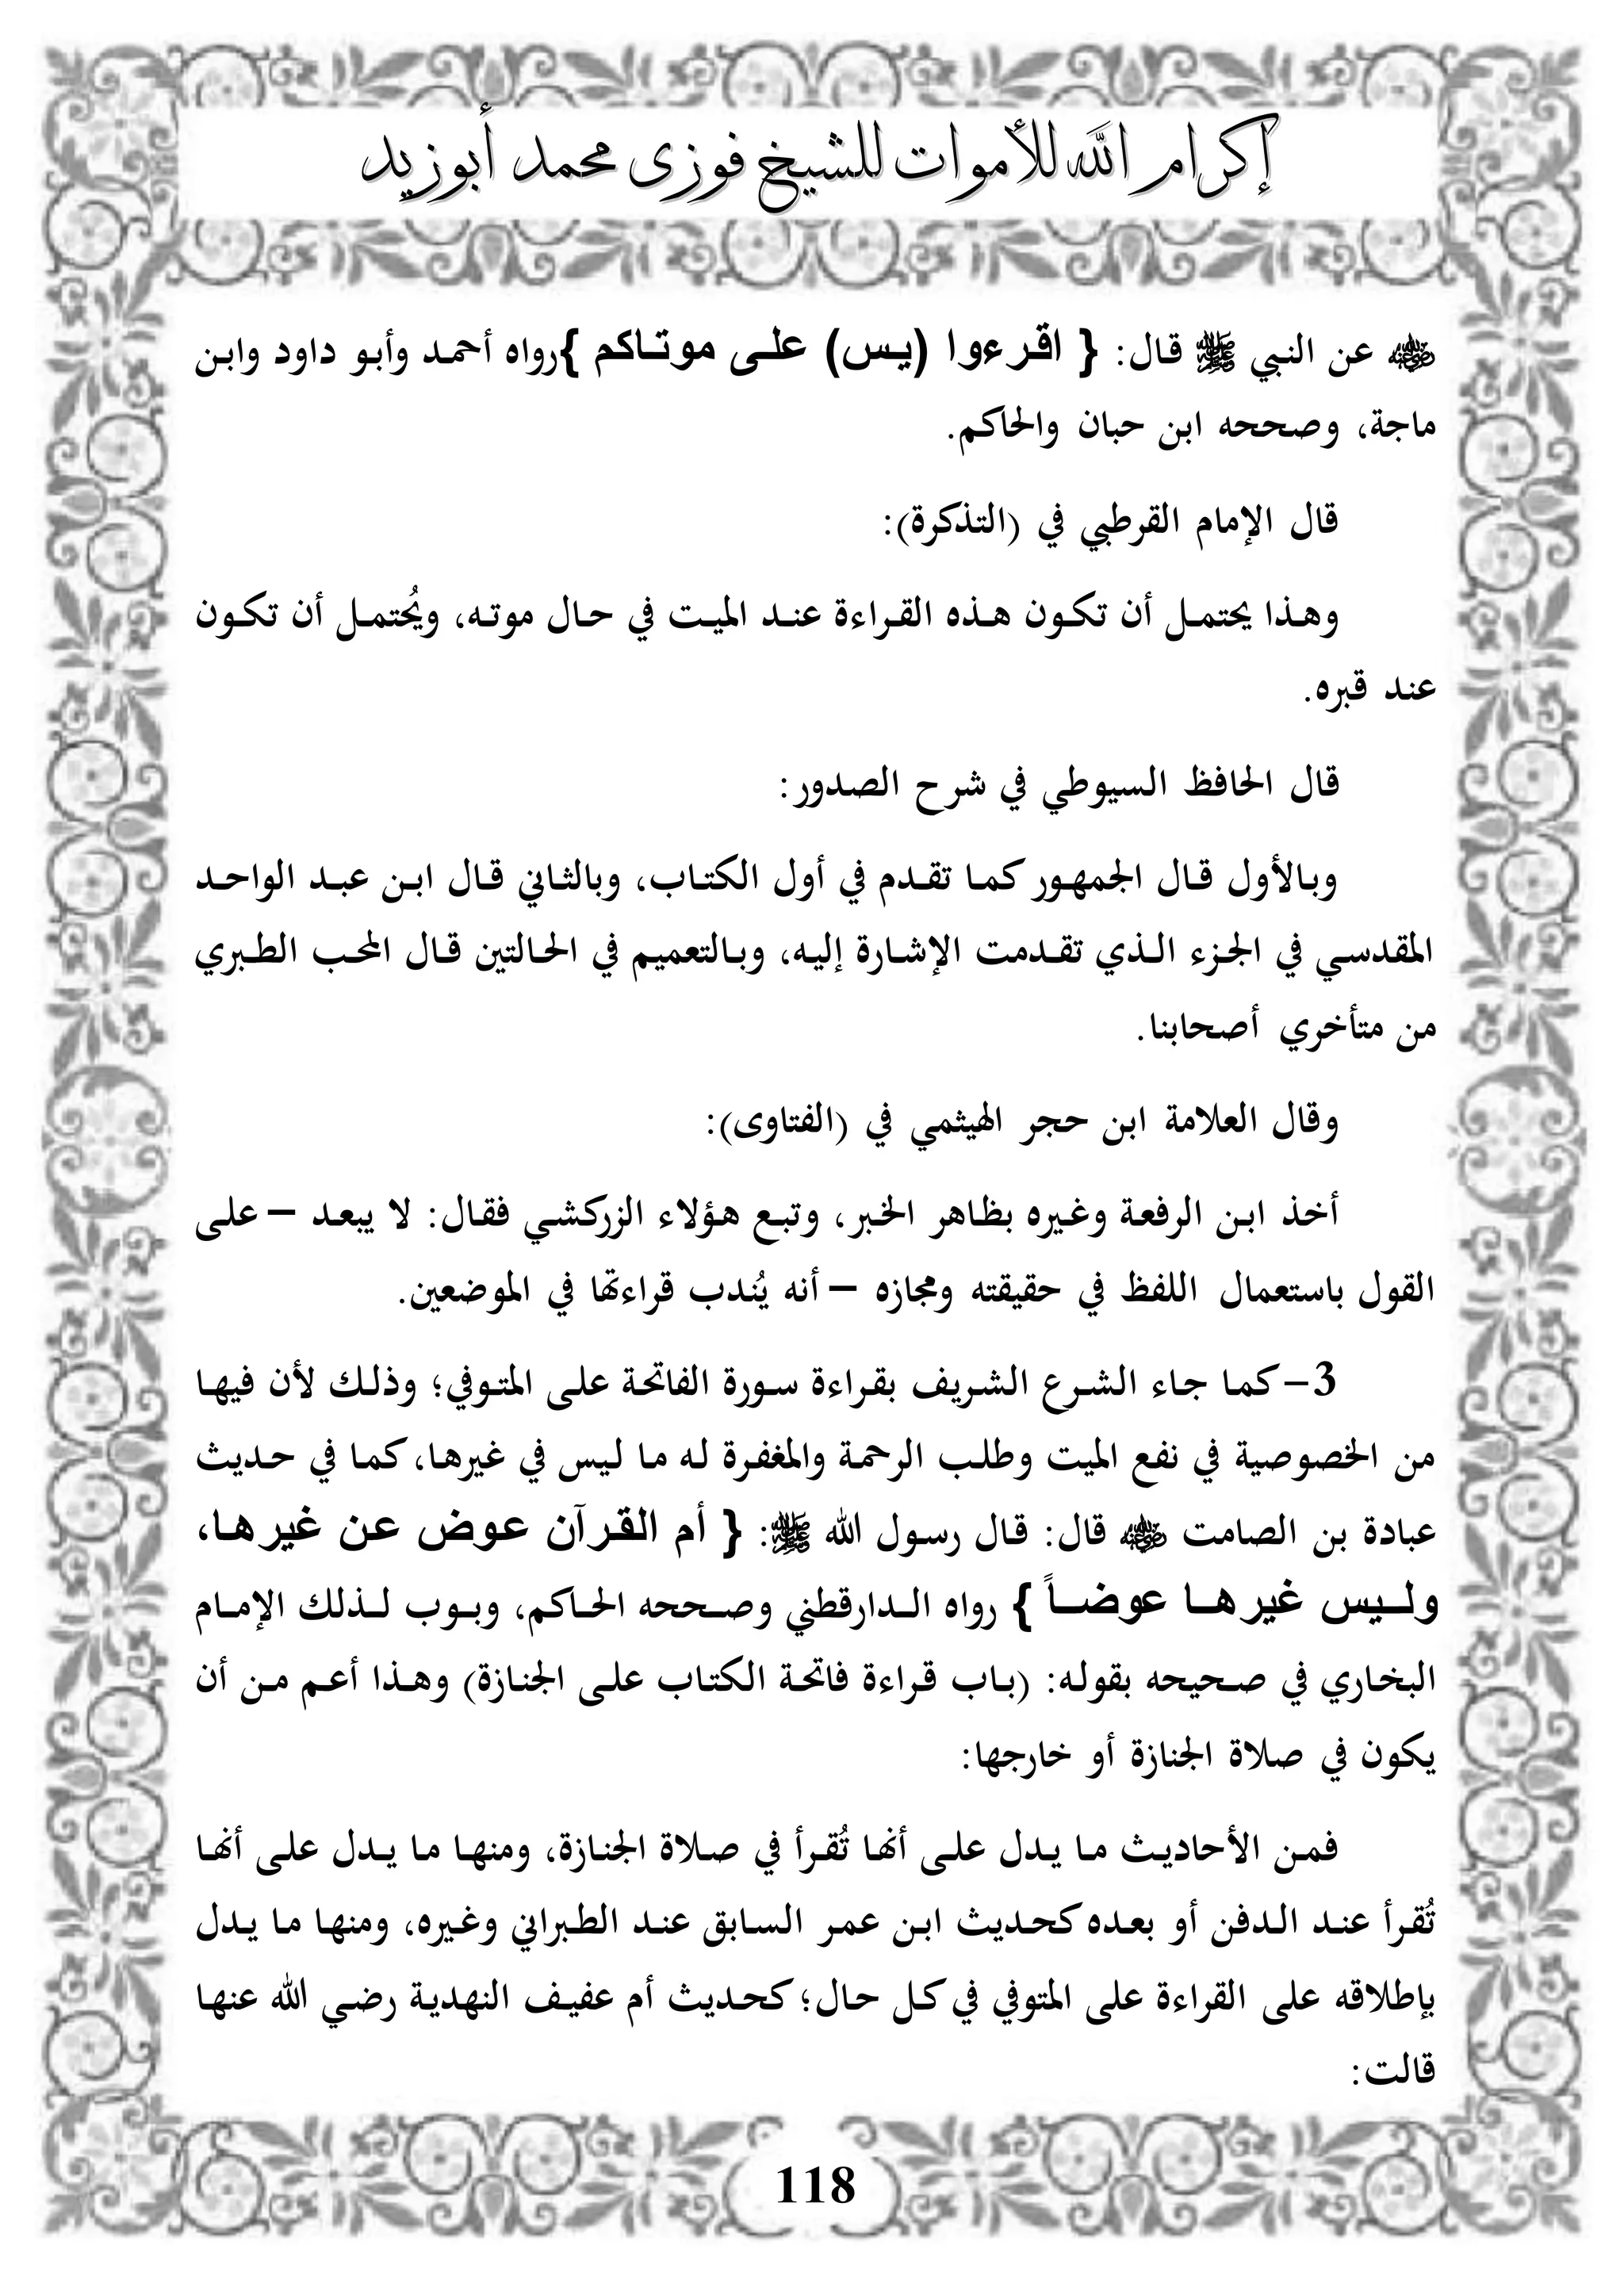 إكرام الله للأموات للشيخ فوزى محمد أبوزيد
رضي الله عنه عن النبي ﷺ قال: { اقرءوا (يس) على موتاكم }رواه أحمد وأبو داود وابن
ماجة، وصححه ابن حبان والحاكم.
قال الإمام القرطبي في (التذكرة):
وهذا يحتمل أن تكون هذه القراءة عند الميت في حال موته، ويُحتمل أن تكون
عند قبره.
قال الحافظ السيوطي في شرح الصدور:
وبالأول قال الجمهور كما تقدم في أول الكتاب، وبالثاني قال ابن عبد الواحد
المقدسي في الجزء الذي تقدمت الإشارة إليه، وبالتعميم في الحالتين قال المحب الطبري
من متأخري أصحابنا.
وقال العلامة ابن حجر الهيثمي في (الفتاوى):
أخذ ابن الرفعة وغيره بظاهر الخبر، وتبع هؤلاء الزركشي فقال: لا يبعد – على
القول باستعمال اللفظ في حقيقته ومجازه – أنه يُندب قراءتها في الموضعين.
3- كما جاء الشرع الشريف بقراءة سورة الفاتحة على المتوفي؛ وذلك لأن فيها
من الخصوصية في نفع الميت وطلب الرحمة والمغفرة له ما ليس في غيرها، كما في حديث
عبادة بن الصامت رضي الله عنه قال: قال رسول الله ﷺ: { أم القرآن عوض عن غيرها،
وليس غيرها عوضاً } رواه الدارقطني وصححه الحاكم، وبوب لذلك الإمام
البخاري في صحيحه بقوله: (باب قراءة فاتحة الكتاب على الجنازة) وهذا أعم من أن
يكون في صلاة الجنازة أو خارجها:
فمن الأحاديث ما يدل على أنها تُقرأ في صلاة الجنازة، ومنها ما يدل على أنها
تُقرأ عند الدفن أو بعده كحديث ابن عمر السابق عند الطبراني وغيره، ومنها ما يدل
بإطلاقه على القراءة على المتوفي في كل حال؛ كحديث أم عفيف النهدية رضي الله عنها
قالت:
118